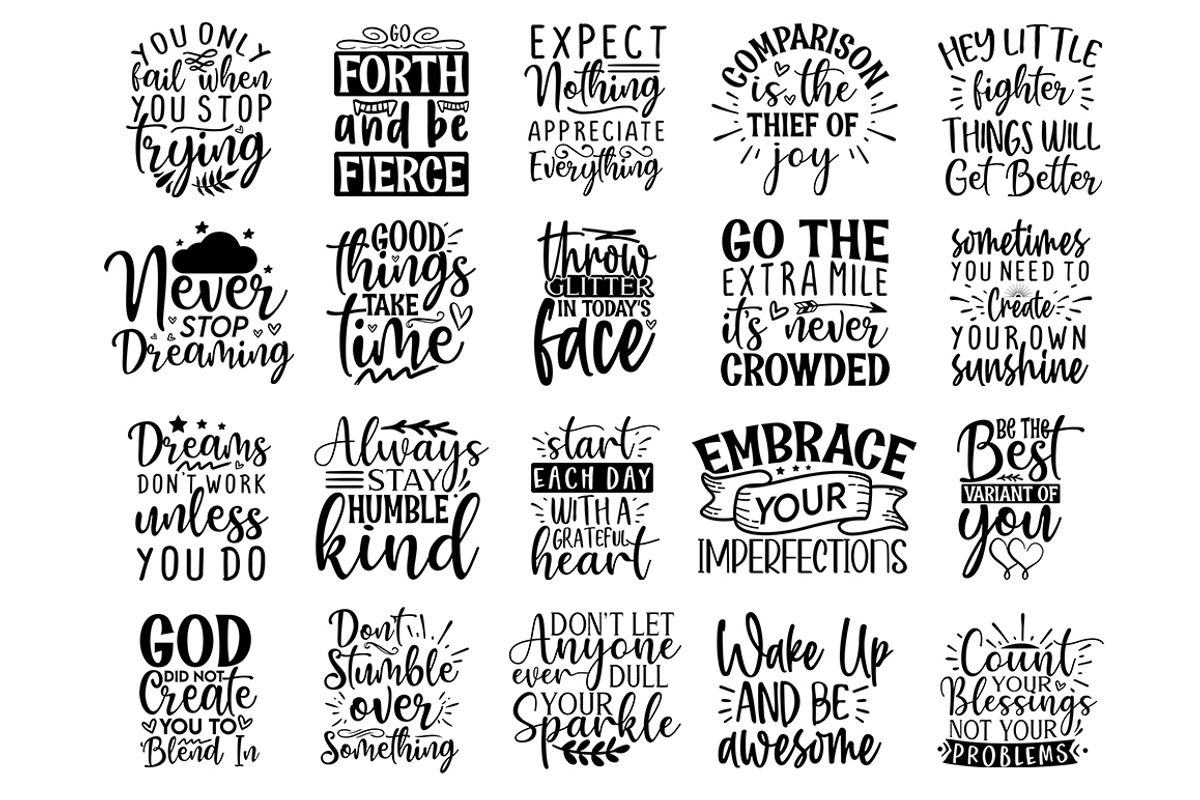 YOU ONLY
fail when
YOU STOP
trying
GO
FORTH
and be
FIERCE
EXPECT
Nothing
APPRECIATE
Everything
COMPARISON
is the
THIEF OF
joy
HEY LITTLE
fighter
THINGS WILL
Get Better
Never
STOP
Dreaming
GOOD
things
TAKE
time
throw
GLITTER
IN TODAY'S
face
GO THE
EXTRA MILE
it's never
CROWDED
sometimes
YOU NEED TO
Create
YOUR OWN
sunshine
Dreams
DON'T WORK
unless
YOU DO
Always
STAY
HUMBLE
kind
start
EACH DAY
WITH A
GRATEFUL
heart
EMBRACE
YOUR
IMPERFECTIONS
BE THE
Best
VARIANT OF
you
GOD
DID NOT
Create
YOU TO
Blend In
Don't
Stumble
over
Something
DON'T LET
Anyone
ever DULL
YOUR
Sparkle
Wake Up
AND BE
awesome
Count
YOUR
Blessings
NOT YOUR
PROBLEMS